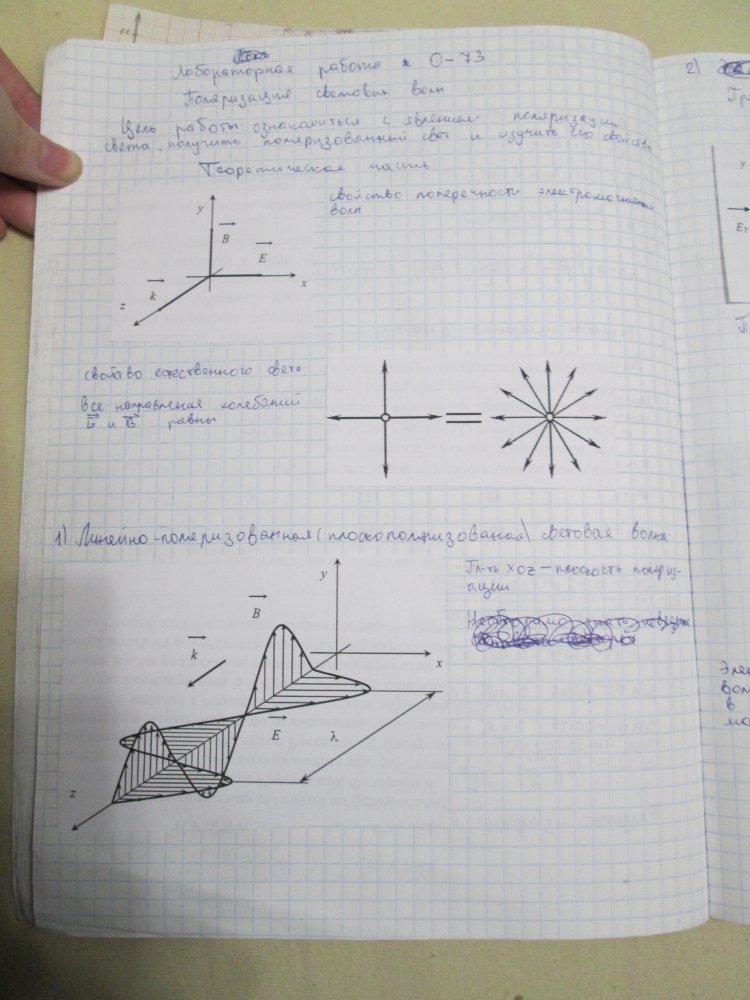 Лабораторная работа О-73
Поляризация световых волн
Цель работы: ознакомиться с явлением поляризации
света, получить поляризованный свет и изучить его свойства
Теоретическая часть
свойство поперечности электромагнитных
волн
y
B
E
x
k
z
свойство естественного света
все направления колебаний
E и B равны
=
1) Линейно-поляризованная (плоскополяризованая) световая волна
Пл-ть XOZ – плоскость поляриз-
ации
y
B
k
x
E
λ
z
2)
y
E
Элек
вол
в